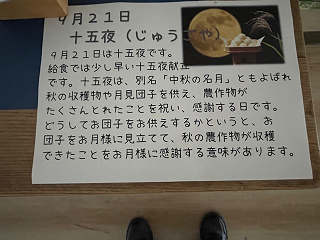 ９月２１日
十五夜（じゅうごや）
９月２１日は十五夜です。
給食では少し早い十五夜献立
です。十五夜は、別名「中秋の名月」ともよばれ
秋の収穫物や月見団子を供え、農作物が
たくさんとれたことを祝い、感謝する日です。
どうしてお団子をお供えするかというと、お
団子をお月様に見立てて、秋の農作物が収穫
できたことをお月様に感謝する意味があります。